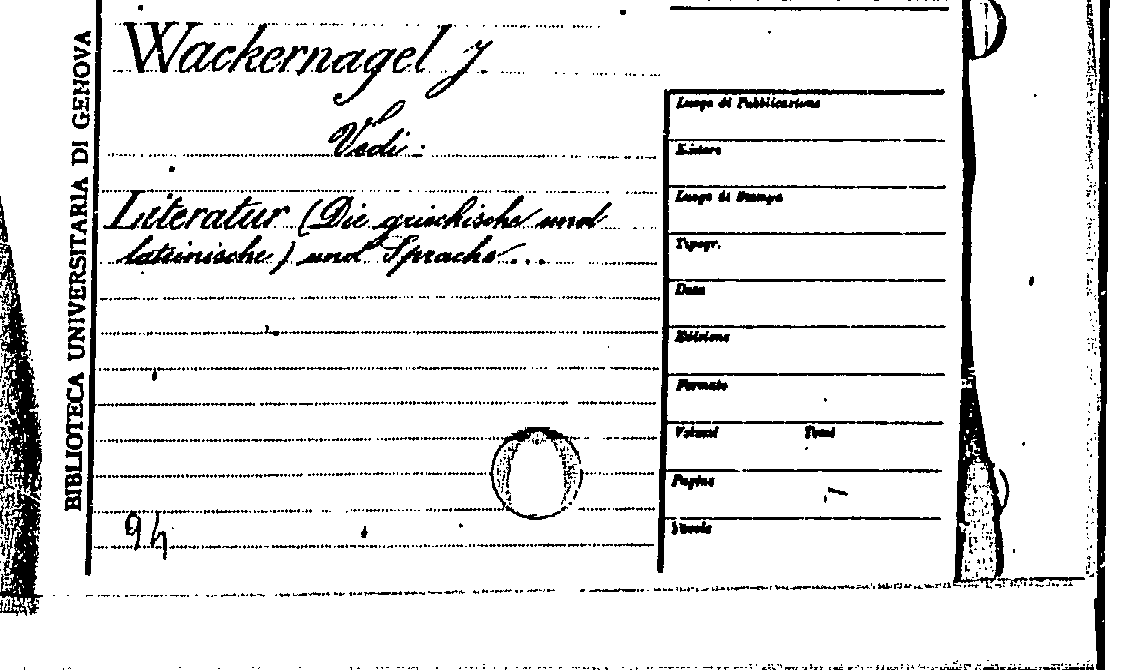 BIBLIOTECA UNIVERSITARIA DI GENOVA
Wackernagel J.
Vedi:
Literatur (Die griechische und
lateinische) und Sprache...
Luogo di Pubblicazione
Editore
Luogo di Stampa
Tipogr.
Data
Edizione
Formato
Volumi Tomi
Pagine